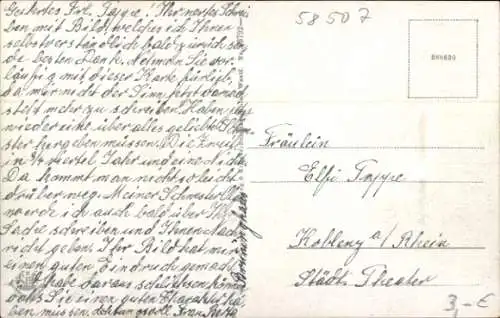 Geehrtes Frl. Pappe! Ihr wertes Schrei-
ben mit Bild, welches ich Ihnen
selbstverständlich bald zurück sende
besten Dank. Nehmen Sie vor-
läufig mit dieser Karte fürlieb,
da mir nicht der Sinn jetzt danach
steht mehr zu schreiben. Haben
wieder eine über alles geliebte Schwe-
ster hergeben müssen. Die zweite
in 1/4 Jahr und eine Nichte.
Da kommt man nicht so leicht
drüber weg. Meiner Schwester
werde ich auch bald über Ihre
Sache schreiben und Ihnen Nach-
richt geben. Ihr Bild hat mir
einen guten Eindruck gemacht
habe daraus schliessen können
dass Sie einen guten Charakter ha-
ben müssen. Achtungsvoll Frau
58507
Fräulein
Elfi Pappe
Koblenz a/Rhein
Städt. Theater
3,- €